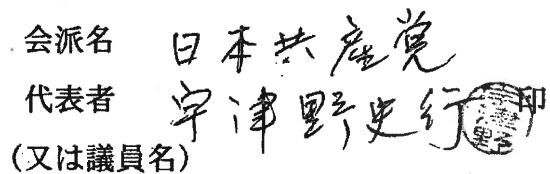 会派名 日本共産党
代表者 宇津野史行 印
(又は議員名)
宇津野